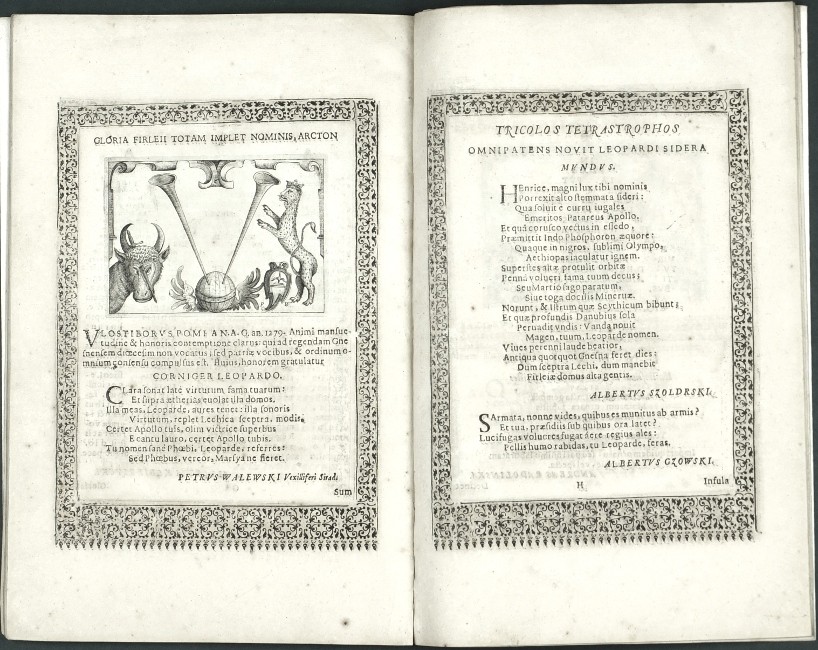 GLORIA FIRLEII TOTAM IMPLET NOMINIS, ARCTON
VLOSTIBORVS POMIAN A. G. an. 1279. Animi mansue-
tudine & honoris contemptione clarus: qui ad regendam Gne
snensem diœcesim non vocatus; sed patriæ vocibus, & ordinum o-
mnium consensu compulsus est. Huius, honorem gratulatur
CORNIGER LEOPARDO.
CLara sonat latè virtutum fama tuarum:
Et supra ætherias euolat illa domos.
Illa meas, Leoparde, aures tenet: illa sonoris
Virtutum, replet Lechica sceptra, modis.
Certet Apollo tuis, olim victrice superbus
E cantu lauro, certet Apollo tubis.
Tu nomen sanè Phœbi, Leoparde, referres:
Sed Phœbus, vereor, Marsya ne fieret.
PETRVS WALEWSKI Vexilliferi Sirad:
Sum
TRICOLOS TETRASTROPHOS
OMNIPATENS NOVIT LEOPARDI SIDERA
MVNDVS.
HEnrice, magni lux tibi nominis
Porrexit alto stemmata sideri:
Qua soluit è curru iugales
Emeritos Patareus Apollo.
Et quâ corusco vectus in essedo,
Præmittit Indo Phosphoron æquore:
Quaque in nigros, sublimi Olympo,
Aethiopas iaculatur ignem.
Superstes altæ protulit orbitæ
Pennâ volucri fama tuum decus;
Seu Martio sago paratum,
Siue toga docilis Mineruæ.
Norunt, & Istrum quæ Scythicum bibunt;
Et quæ profundis Danubius sola
Peruadit vndis: Vanda nouit
Magen, tuum, Leoparde nomen.
Viues perenni laude beatior,
Antiqua quotquot Gnesna feret dies:
Dum sceptra Lechi, dum manebit
Firleiæ domus alta gentis.
ALBERTVS SZOLDRSKI.
SArmata, nonne vides, quibus es munitus ab armis?
Et tua, præsidiis sub quibus ora latet?
Lucifugas volucres fugat ære regius ales:
Pellis humo rabidas, tu Leoparde, feras.
ALBERTVS GZOWSKI.
H
Insula